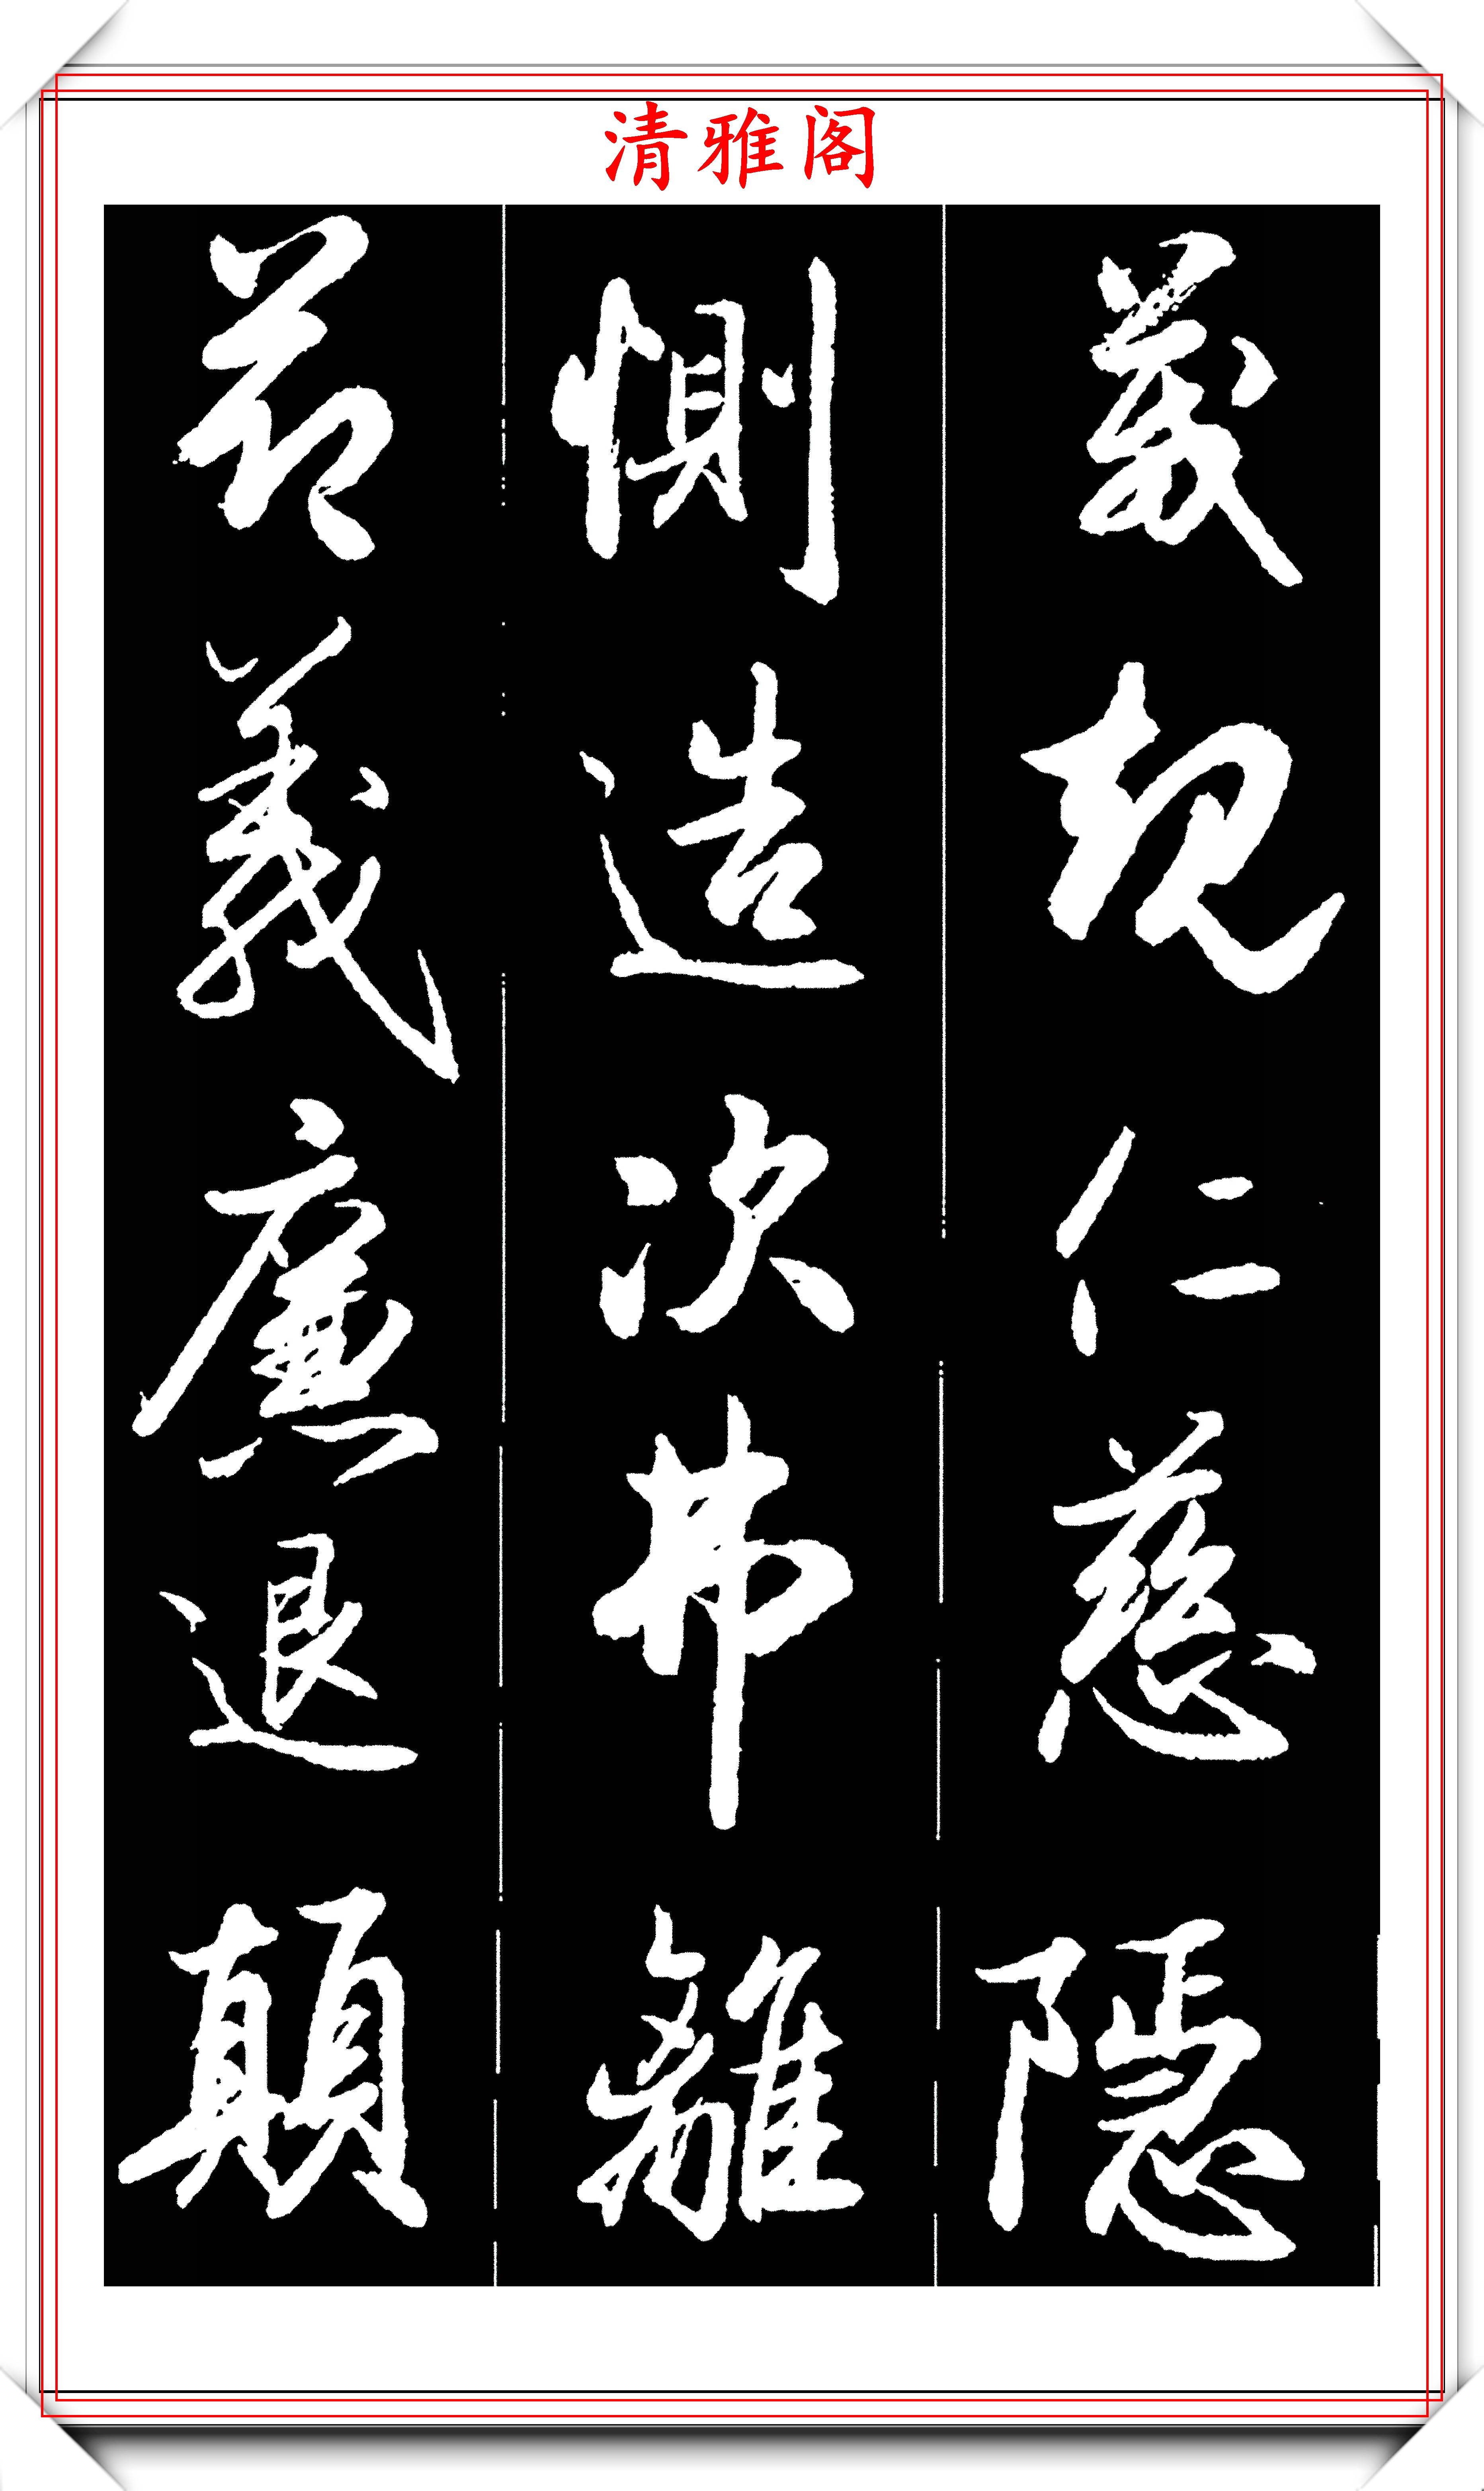 清雅阁
箴規仁慈隱
惻造次弗離
節義廉退顛